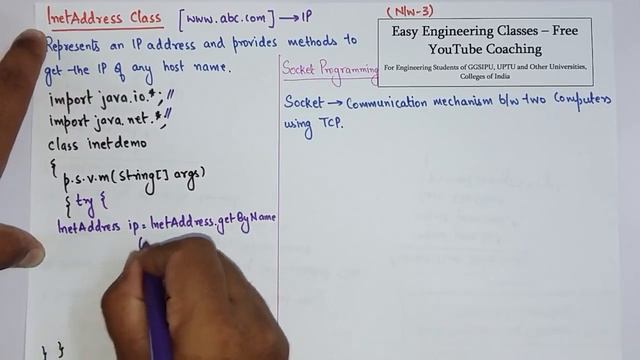 InetAddress Class [www.abc.com] → IP
(N/w-3)
Represents an IP address and provides methods to
get the IP of any host name.
import java.io.*; //
import java.net.*; //
class inetdemo
{
p.s.v.m(String[] args)
{ try {
InetAddress ip = InetAddress.getByName
(
} }
Easy Engineering Classes – Free
YouTube Coaching
For Engineering Students of GGSIPU, UPTU and Other Universities,
Colleges of India
Socket Programming
Socket → Communication mechanism b/w two Computers
using TCP.